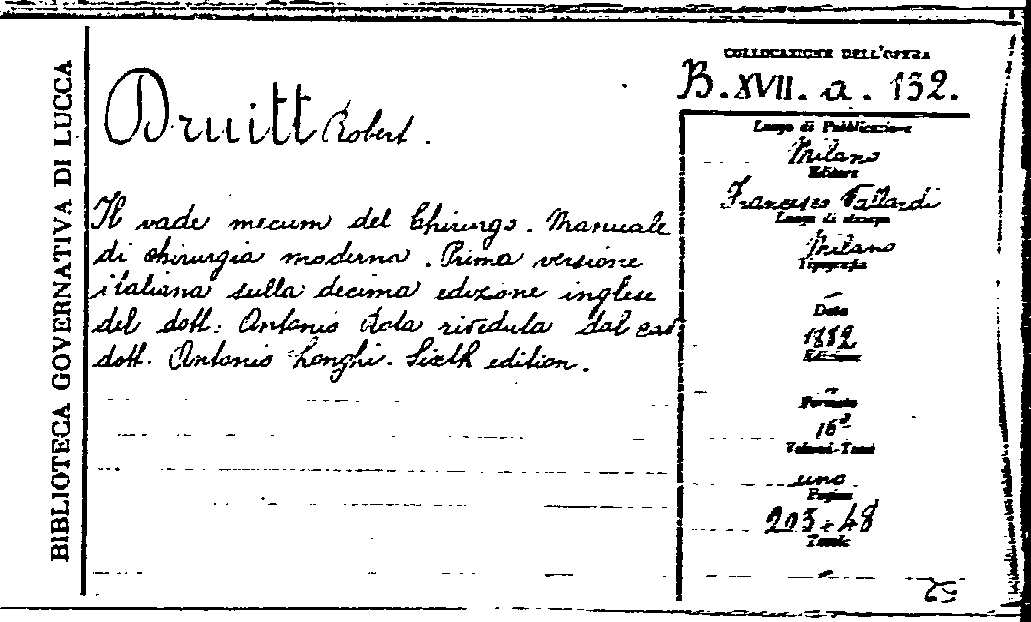 BIBLIOTECA GOVERNATIVA DI LUCCA
Druitt Robert.
Il vade mecum del Chirurgo. Manuale
di chirurgia moderna. Prima versione
italiana sulla decima edizione inglese
del dott. Antonio riveduta dal cav.
dott. Antonio Longhi. Sixth edition.
COLLOCAZIONE DELL'OPERA
B. XVII. a. 132.
Luogo di Pubblicazione
Milano
Editore
Francesco Vallardi
Luogo di stampa
Milano
Tipografia
—
Data
1882
Edizione
—
Formato
16º
Volumi-Tomi
uno
Pagine
203 + 48
Tavole
—